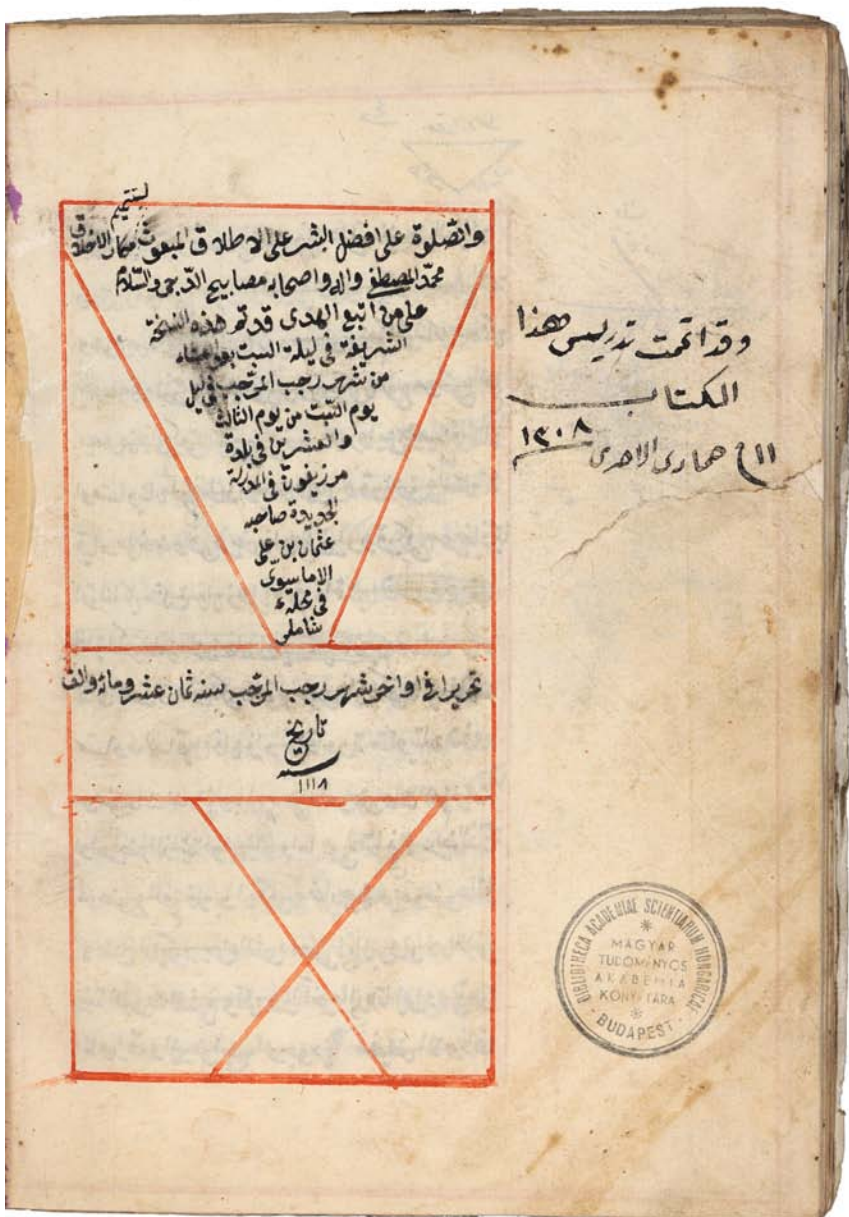 لتتميم
والصلوة على افضل البشر على الاطلاق المبعوث مكارم الاخلاق
محمد المصطفى واله واصحابه مصابيح الدجى والسلام
على من اتبع الهدى قد تم هذه النسخة
الشريفة فى ليلة السبت
من شهر رجب المرجب
يوم السبت من يوم الثالث
والعشرين فى بلدة
مرزيفون فى المدرسة
الجديدة صاحبه
عثمان بن على
الاماسيوى
فى محلهء
شاملر
تحريرا فى اواخر شهر رجب المرجب سنه ثمان عشر ومائه والف
تاريخ
سنه
١١١٨
وقد اتممت تدريس هذا
الكتاب
١١ جمادى الاخرى ١٣٠٨
BIBLIOTHECA ACADEMIAE SCIENTIARUM HUNGARICAE
MAGYAR
TUDOMÁNYOS
AKADÉMIA
KÖNYVTÁRA
BUDAPEST